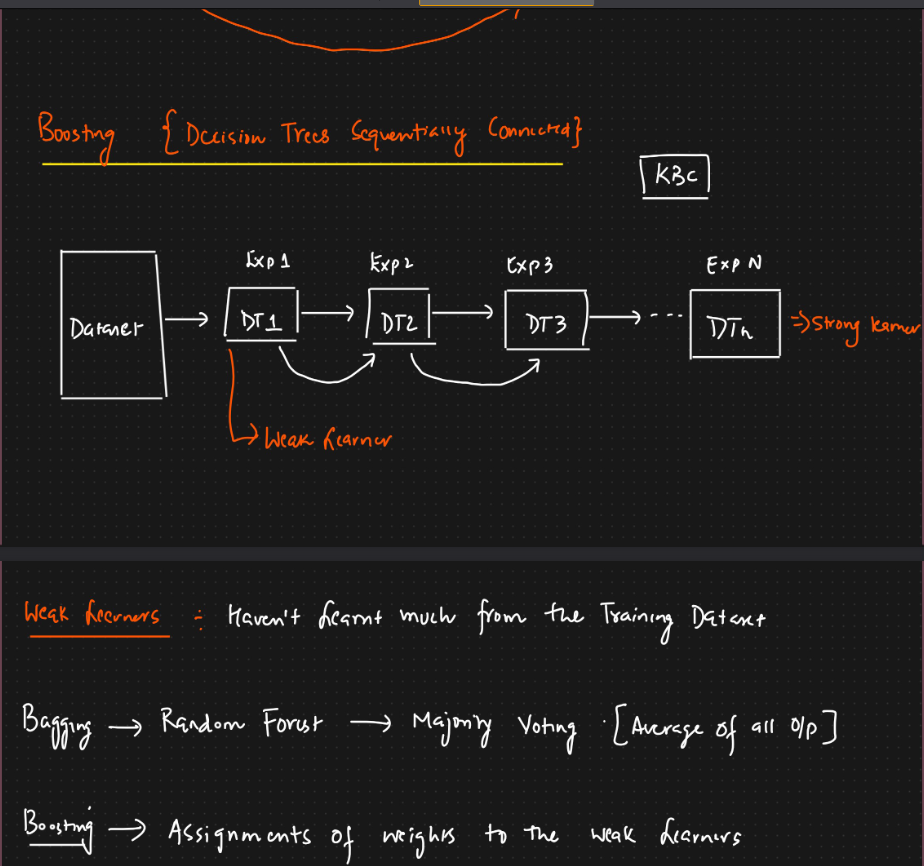 Boosting {Decision Trees Sequentially Connected}
KBC
Exp 1 Exp 2 Exp 3 Exp N
Dataset DT1 DT2 DT3 --- DTn ⇒ Strong learner
Weak Learner
Weak Learners ÷ Haven't Learnt much from the Training Dataset
Bagging → Random Forest → Majority Voting · [Average of all O/p]
Boosting → Assignments of weights to the weak Learners